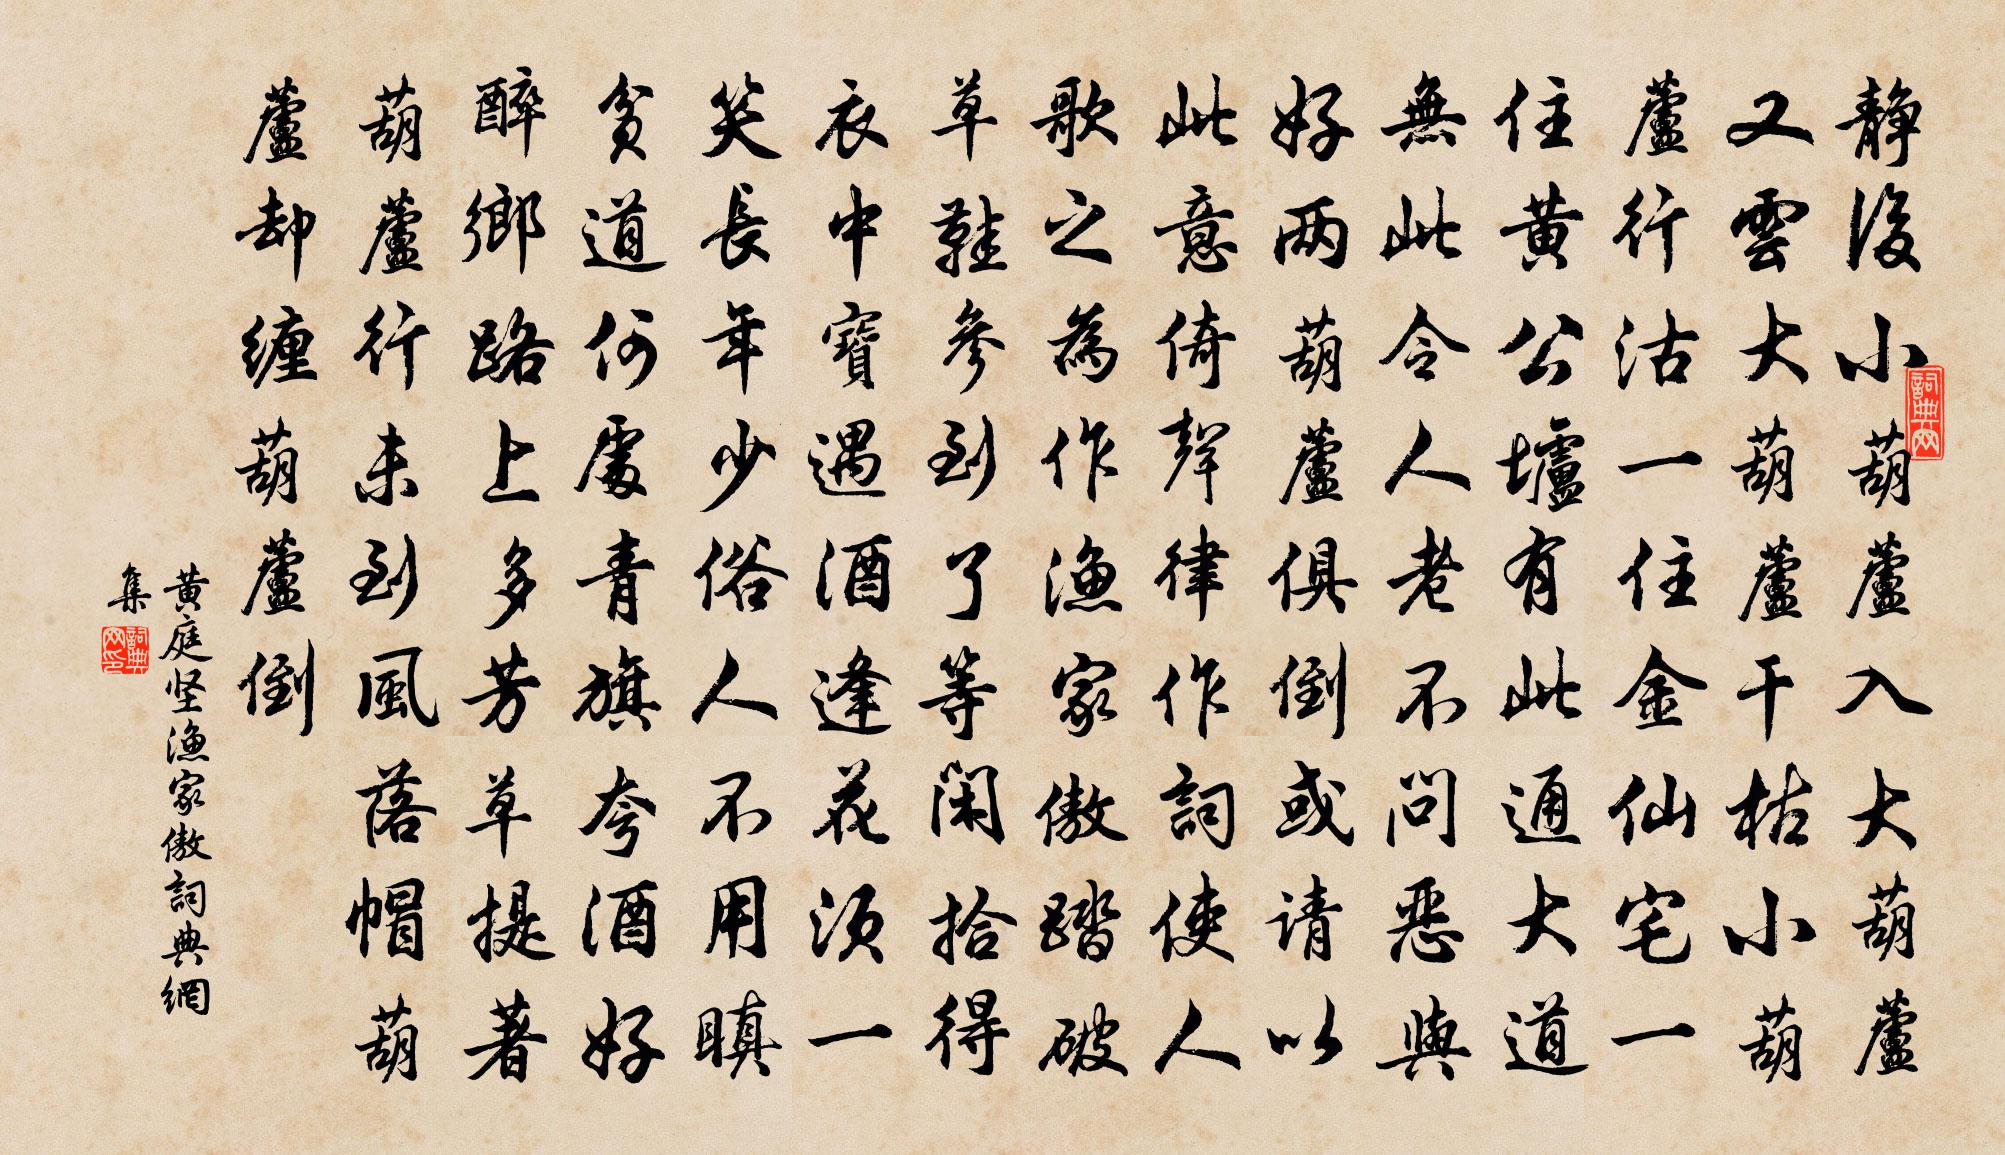 靜後小葫蘆入大葫蘆
又雲大葫蘆干枯小葫
蘆行沽一住金仙宅一
住黃公壚有此通大道
無此令人老不問惡與
好兩葫蘆俱倒或请以
此意倚聲律作詞使人
歌之為作漁家傲踏破
草鞋參到了等閑拾得
衣中寶遇酒逢花須一
笑長年少俗人不用瞋
貧道何處青旗夸酒好
醉鄉路上多芳草提著
葫蘆行未到風落帽葫
蘆却缠葫蘆倒
黄庭坚漁家傲詞典網
集
詞典网
詞典网印